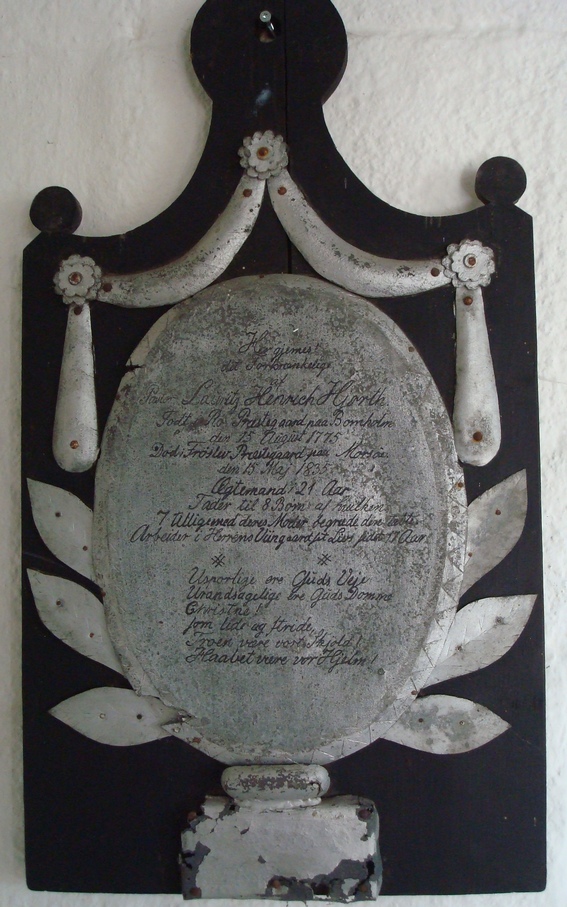 Her gjemes!
det Forkrænkelige
af
Pastor Lauritz Henrich Hjorth
Født i Rø Præstegaard paa Bornholm
den 15 August 1775
Død i Frøslev Præstegaard paa Morsøe
den 15 Maj 1835
Ægtemand i 21 Aar
Fader til 8 Børn af hvilken
7 tilligemed deres Moder begræde den
Arbeider i Herrens Viingaard sit Livs sidste 17 Aar
Usporlige ere Guds Veje
Urandsagelige ere Guds Domme
Christne!
som lide og stride,
Troen være vort Skjold!
Haabet være vor Hjelm!